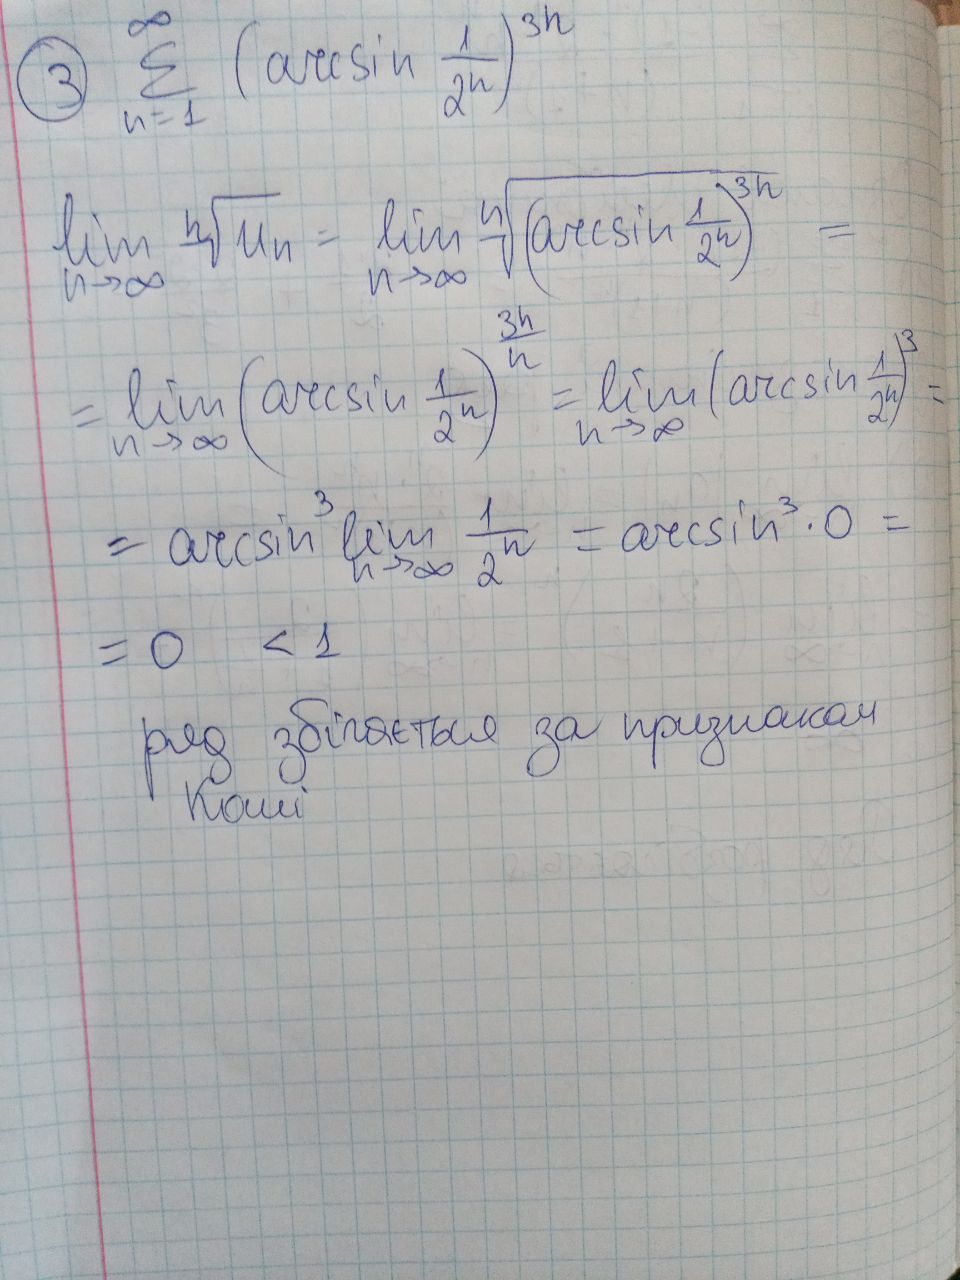 ③ ∞∑n=1 (arcsin 1/2ⁿ)³ⁿ
lim n→∞ ⁿ√uₙ = lim n→∞ ⁿ√(arcsin 1/2ⁿ)³ⁿ =
= lim n→∞ (arcsin 1/2ⁿ)^(3n/n) = lim n→∞ (arcsin 1/2ⁿ)³ =
= arcsin³ lim n→∞ 1/2ⁿ = arcsin³ · 0 =
= 0 < 1
ряд збігається за признакам
Коші